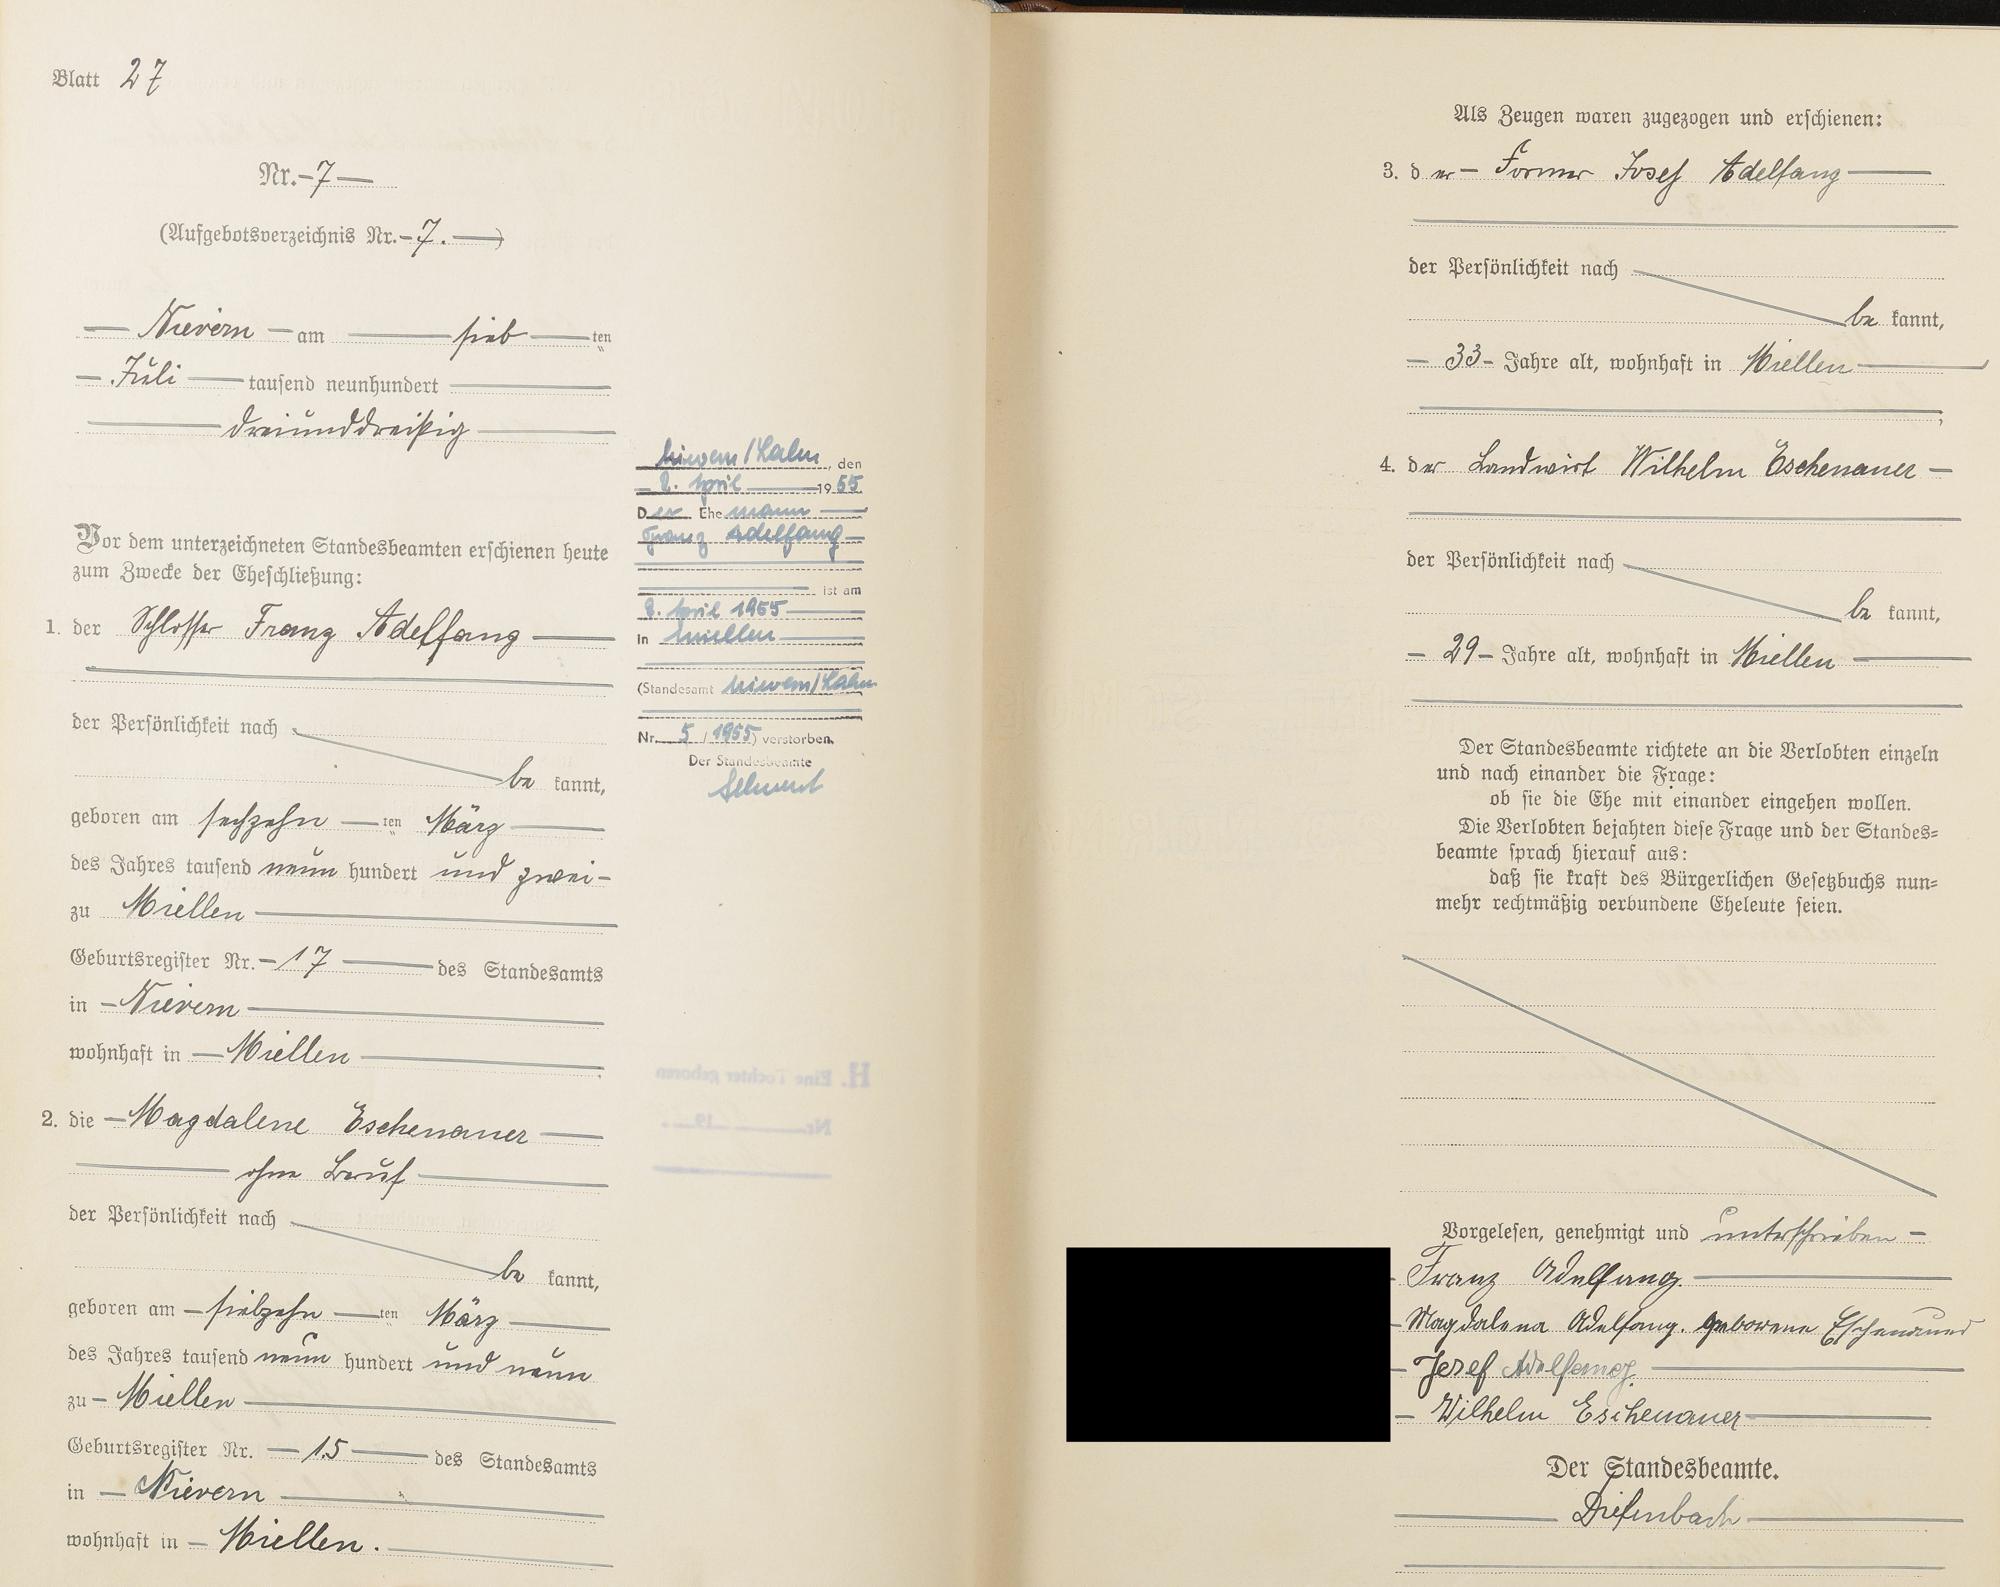 Blatt 27
Nr. 7
(Aufgebotsverzeichnis Nr. 7.)
Nievern am sieb ten
Juli tausend neunhundert
dreiunddreißig
Vor dem unterzeichneten Standesbeamten erschienen heute
zum Zwecke der Eheschließung:
1. der Schlosser Franz Adelfang
der Persönlichkeit nach
be kannt,
geboren am sechzehn ten März
des Jahres tausend neun hundert und zwei
zu Miellen
Geburtsregister Nr. 17 des Standesamts
in Nievern
wohnhaft in Miellen
2. die Magdalene Eschenauer
ohne Beruf
der Persönlichkeit nach
be kannt,
geboren am siebzehn ten März
des Jahres tausend neun hundert und neun
zu Miellen
Geburtsregister Nr. 15 des Standesamts
in Nievern
wohnhaft in Miellen.
Nievern/Lahn, den
2. April 1955
Der Ehemann
Franz Adelfang
ist am
2. April 1955
in Miellen
(Standesamt Nievern/Lahn
Nr. 5 / 1955) verstorben.
Der Standesbeamte
H. Eine Tochter geboren
Nr. 19
Als Zeugen waren zugezogen und erschienen:
3. der Former Josef Adelfang
der Persönlichkeit nach
be kannt,
33 Jahre alt, wohnhaft in Miellen
4. der Landwirt Wilhelm Eschenauer
der Persönlichkeit nach
be kannt,
29 Jahre alt, wohnhaft in Miellen
Der Standesbeamte richtete an die Verlobten einzeln
und nach einander die Frage:
ob sie die Ehe mit einander eingehen wollen.
Die Verlobten bejahten diese Frage und der Standes=
beamte sprach hierauf aus:
daß sie kraft des Bürgerlichen Gesetzbuchs nun=
mehr rechtmäßig verbundene Eheleute seien.
Vorgelesen, genehmigt und unterschrieben
Franz Adelfang.
Magdalena Adelfang. geborene Eschenauer
Josef Adelfang.
Wilhelm Eschenauer
Der Standesbeamte.
Diefenbach